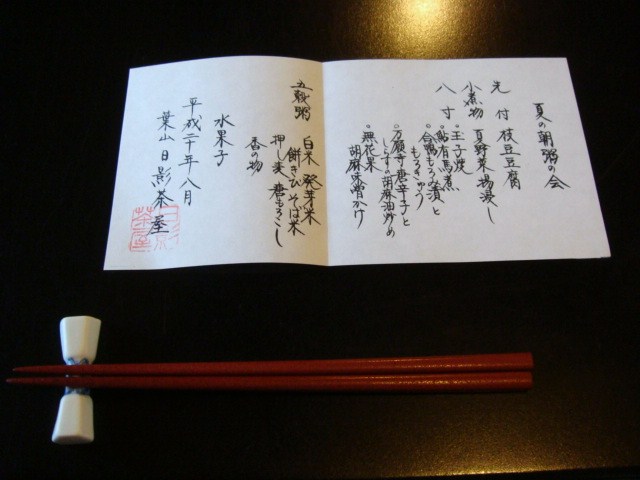 夏の朝粥の会
先付 枝豆豆腐
小煮物 夏野菜揚浸し
八寸
○玉子焼
○鮎有馬煮
○合鴨もろみ漬と
もろきゅう
○万願寺唐辛子と
しらすの胡麻油炒め
○無花果
胡麻味噌かけ
五穀粥 白米 発芽米
餅きび そば米
押し麦 唐もろこし
香の物
水果子
平成二十年八月
葉山 日影茶屋
日影
茶屋